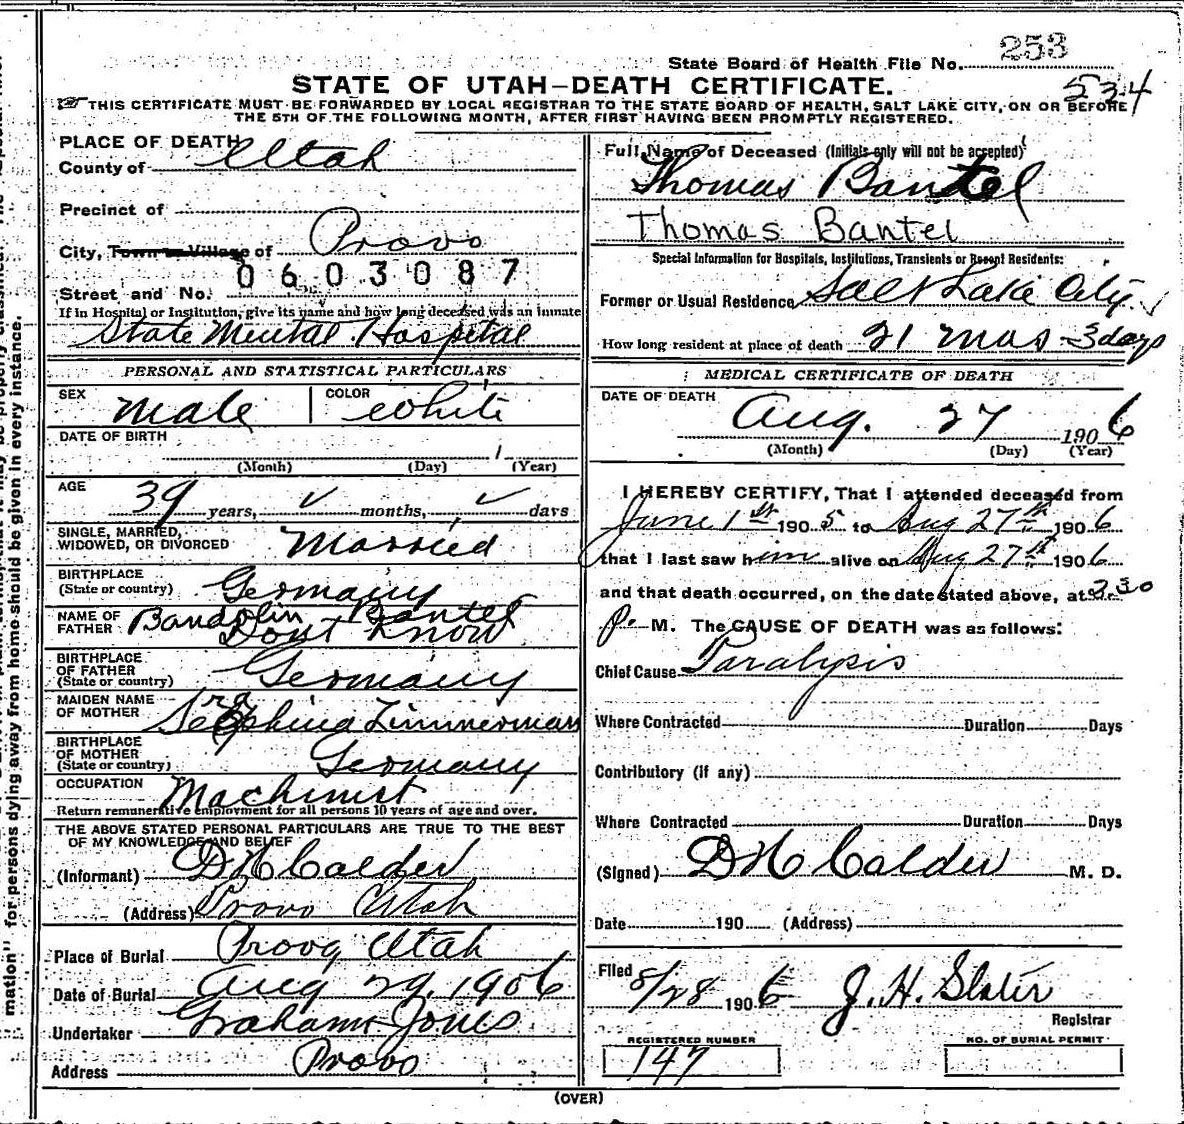 253
State Board of Health File No.
STATE OF UTAH—DEATH CERTIFICATE.
534
THIS CERTIFICATE MUST BE FORWARDED BY LOCAL REGISTRAR TO THE STATE BOARD OF HEALTH, SALT LAKE CITY, ON OR BEFORE
THE 5TH OF THE FOLLOWING MONTH, AFTER FIRST HAVING BEEN PROMPTLY REGISTERED.
PLACE OF DEATH
County of Utah
Precinct of
City, Town or Village of Provo
0603087
Street and No.
If in Hospital or Institution, give its name and how long deceased was an inmate
State Mental Hospital
PERSONAL AND STATISTICAL PARTICULARS
SEX male COLOR white
DATE OF BIRTH
(Month) (Day) (Year)
AGE 39 years, ✓ months, ✓ days
SINGLE, MARRIED,
WIDOWED, OR DIVORCED Married
BIRTHPLACE
(State or country) Germany
NAME OF
FATHER Bandolin Bantel
Dont Know
BIRTHPLACE
OF FATHER
(State or country) Germany
MAIDEN NAME
OF MOTHER Zimmerman
BIRTHPLACE
OF MOTHER
(State or country) Germany
OCCUPATION Machinist
Return remunerative employment for all persons 10 years of age and over.
THE ABOVE STATED PERSONAL PARTICULARS ARE TRUE TO THE BEST
OF MY KNOWLEDGE AND BELIEF
(Informant) D H Calder
(Address) Provo Utah
Place of Burial Provo Utah
Date of Burial Aug 29, 1906
Undertaker Graham Jones
Address Provo
Full Name of Deceased (Initials only will not be accepted)
Thomas Bantel
Thomas Bantel
Special Information for Hospitals, Institutions, Transients or Recent Residents:
Former or Usual Residence Salt Lake City ✓
How long resident at place of death 21 mos - 3 days
MEDICAL CERTIFICATE OF DEATH
DATE OF DEATH
Aug. 27 1906
(Month) (Day) (Year)
I HEREBY CERTIFY, That I attended deceased from
June 1st 1905 to Aug 27th 1906
that I last saw him alive on Aug 27th 1906
and that death occurred, on the date stated above, at 3.30
P. M. The CAUSE OF DEATH was as follows:
Chief Cause Paralysis
Where Contracted Duration Days
Contributory (if any)
Where Contracted Duration Days
(Signed) D H Calder M. D.
Date 190 (Address)
Filed 8/28 1906 J. H. Slater
Registrar
REGISTERED NUMBER
147
NO. OF BURIAL PERMIT
(OVER)
mation" for persons dying away from home should be given in every instance.